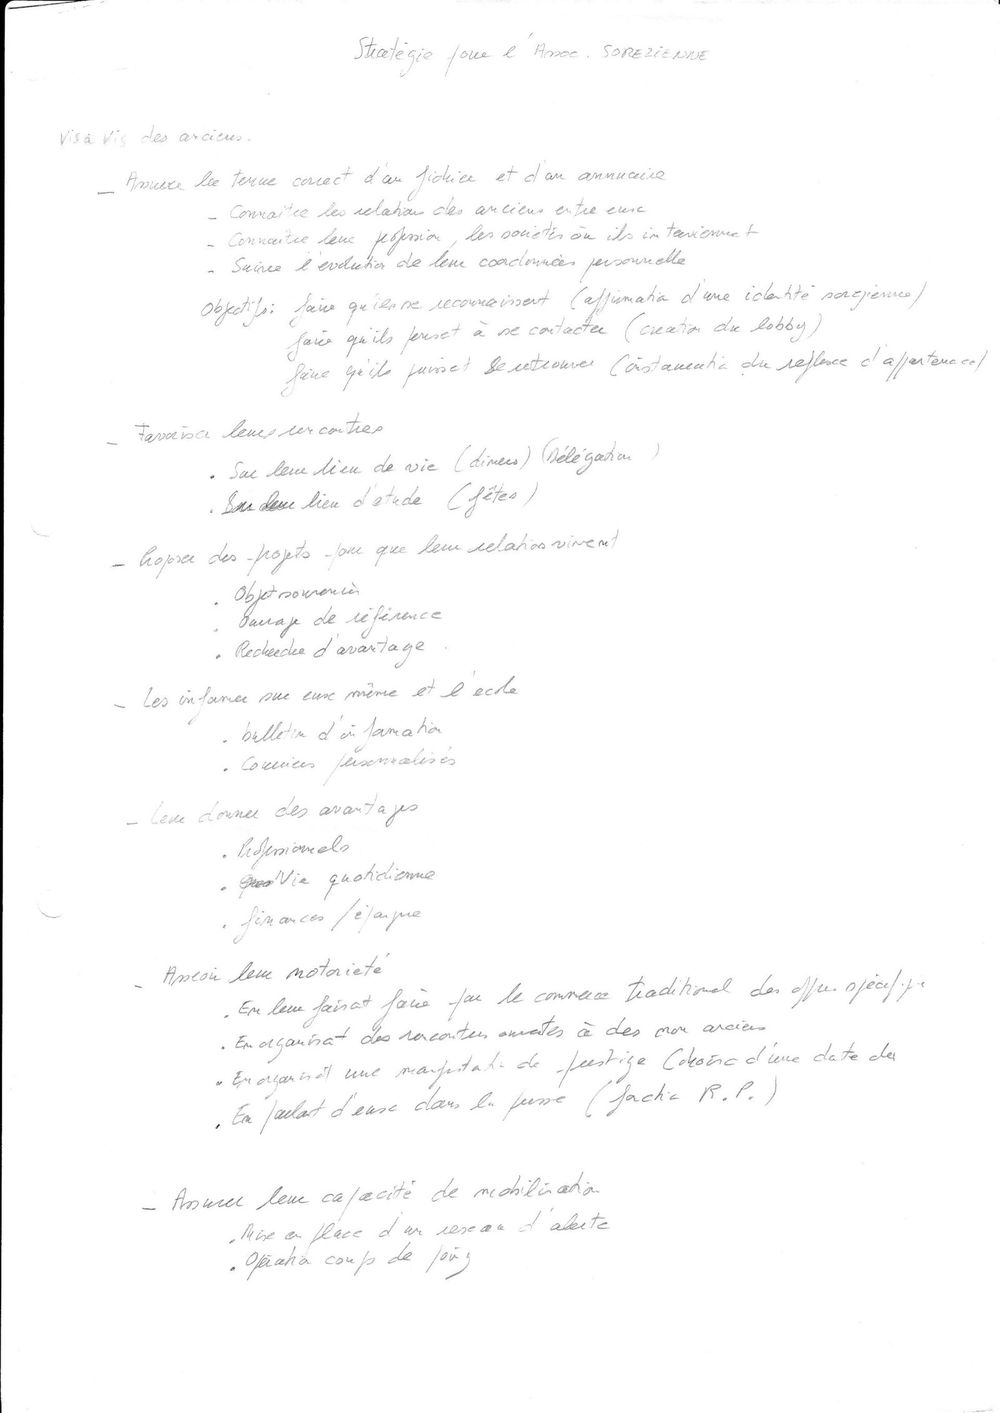 Stratégie pour l'Assoc. SOREZIENNE
Vis à Vis des anciens.
– Assurer la tenue correct d'un fichier et d'un annuaire
– Connaitre les relations des anciens entre eux
– Connaitre leur profession, les sociétés où ils interviennent
– Suivre l'évolution de leur coordonnées personnelle
Objectifs: faire qu'ils se reconnaissent (affirmation d'une identité sorezienne)
faire qu'ils pensent à se contacter (creation du lobby)
faire qu'ils puissent se retrouver (instauration du reflexe d'appartenance)
– Favoriser leurs rencontres
. Sur leur lieu de vie (diners) (Délégation)
. Sur leur lieu d'étude (fêtes)
– Proposer des projets pour que leur relation vivent
. Objet souvenir
. Ouvrage de référence
. Recherche d'avantage.
– Les informer sur eux même et l'école
. bulletin d'information
. Courriers personnalisés
– Leur donner des avantages
. Professionnels
. Vie quotidienne
. finances / épargne
– Asseoir leur notorieté
. En leur faisant faire par le commerce traditionnel des offres spécifiques
. En organisant des rencontres ouvertes à des non anciens
. En organisant une manifestation de prestige (choisir d'une date
. En parlant d'eux dans la presse (R.P.)
– Assurer leur capacité de mobilisation
. Mise en place d'un reseau d'alerte
. Opération coups de poing